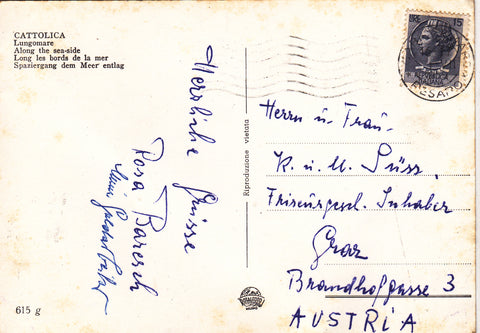 CATTOLICA
Lungomare
Along the sea-side
Long les bords de la mer
Spaziergang dem Meer entlag
Herzliche Grüsse
Rosa Baresch
Riproduzione vietata
615 g
15
PESARO
Herrn u. Frau
K. u. M. Süss
Friseurgesch. Inhaber
Graz
Brandhofgasse 3
AUSTRIA